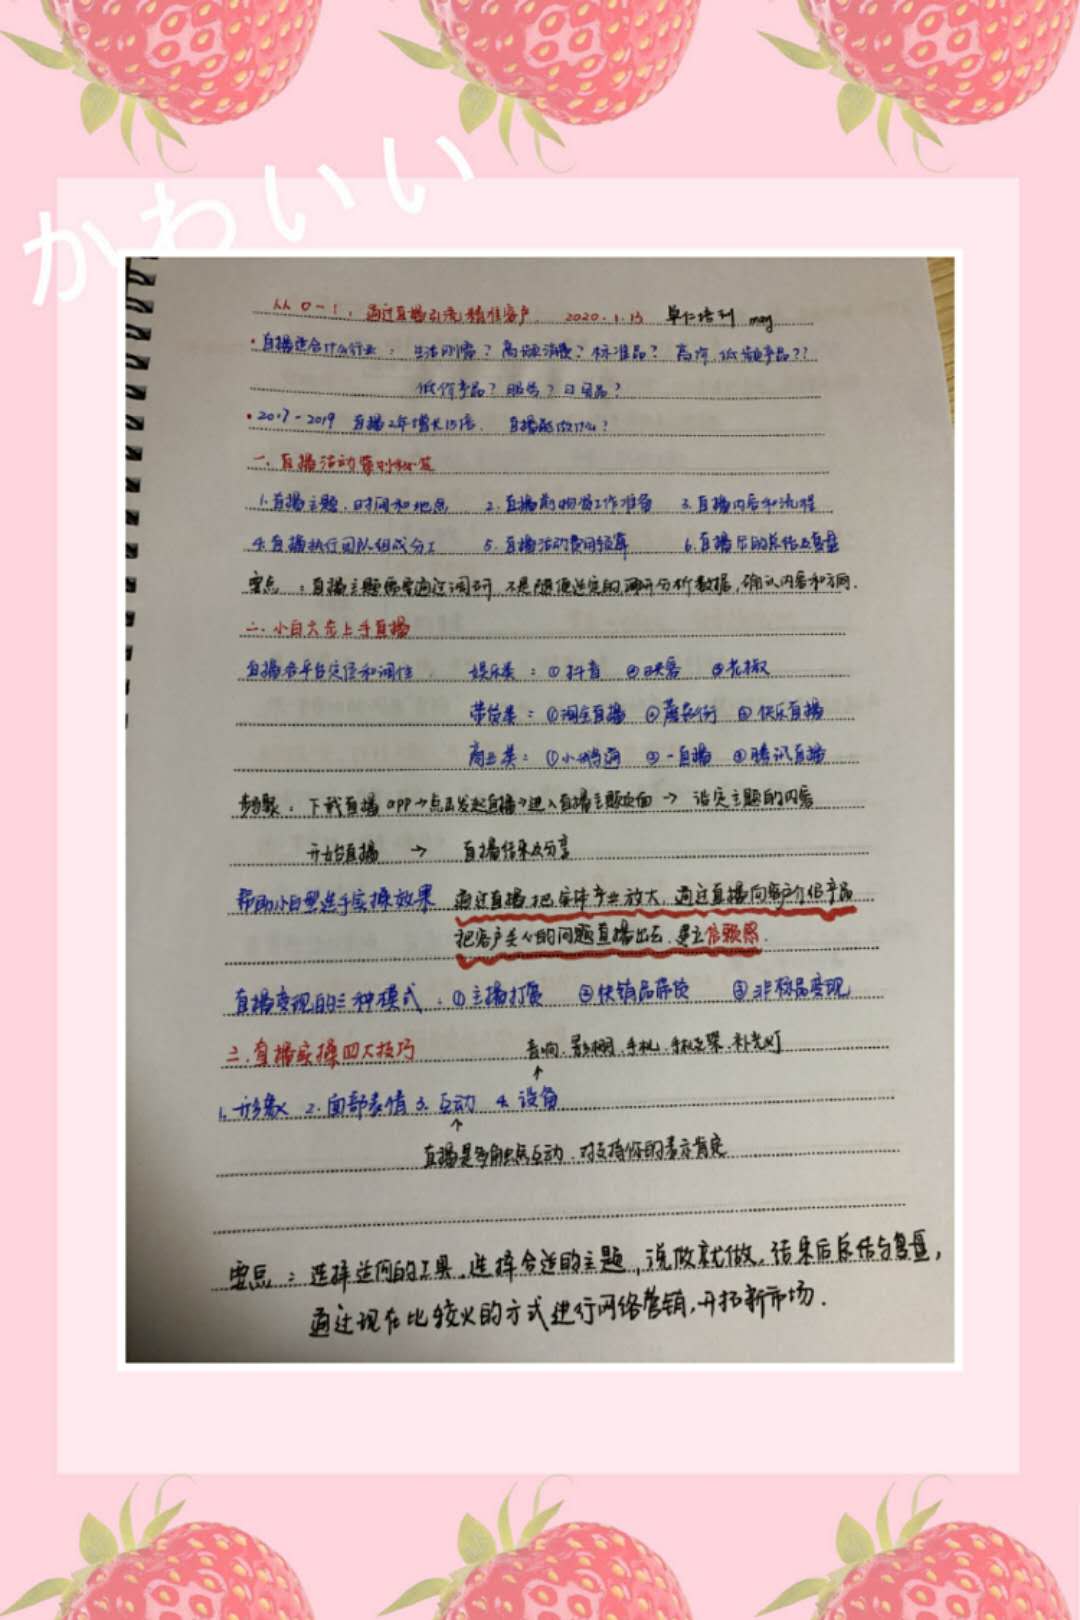 かわいい
从0-1，通过直播引流精准客户 2020.1.13 单仁培训 may
·直播适合什么行业：生活刚需？高频消费？标准品？高价、低频产品？？
低价产品？服务？日用品？
·2017-2019 直播2年增长15倍. 直播能做什么？
一、直播活动策划秘笈
1.直播主题、时间和地点 2.直播前物资工作准备 3.直播内容和流程
4.直播执行团队组成分工 5.直播活动费用预算 6.直播后的总结及复盘
要点：直播主题需要通过调研，不是随便选定的，调研分析数据，确认内容和方向.
二、小白六步上手直播
直播各平台定位和调性 娱乐类：①抖音 ②映客 ③花椒
带货类：①淘宝直播 ②蘑菇街 ③快乐直播
商业类：①小鹅通 ②一直播 ③腾讯直播
步骤：下载直播app→点击发起直播→进入直播主题页面→设定主题的内容
开始直播 → 直播结束及分享
帮助小白型选手实操效果 通过直播把实体产业放大，通过直播向客户介绍产品
把客户关心的问题直播出去、建立信赖感.
直播变现的三种模式：①主播打赏 ②快销品带货 ③非标品变现
三、直播实操四大技巧 音响、手机、手机支架、补光灯
↑
1.形象 2.面部表情 3.互动 4.设备
↑
直播是多触点互动，对支持你的表示肯定
要点：选择适网的工具，选择合适的主题，说做就做，结束后总结与复盘，
通过现在比较火的方式进行网络营销，开拓新市场.